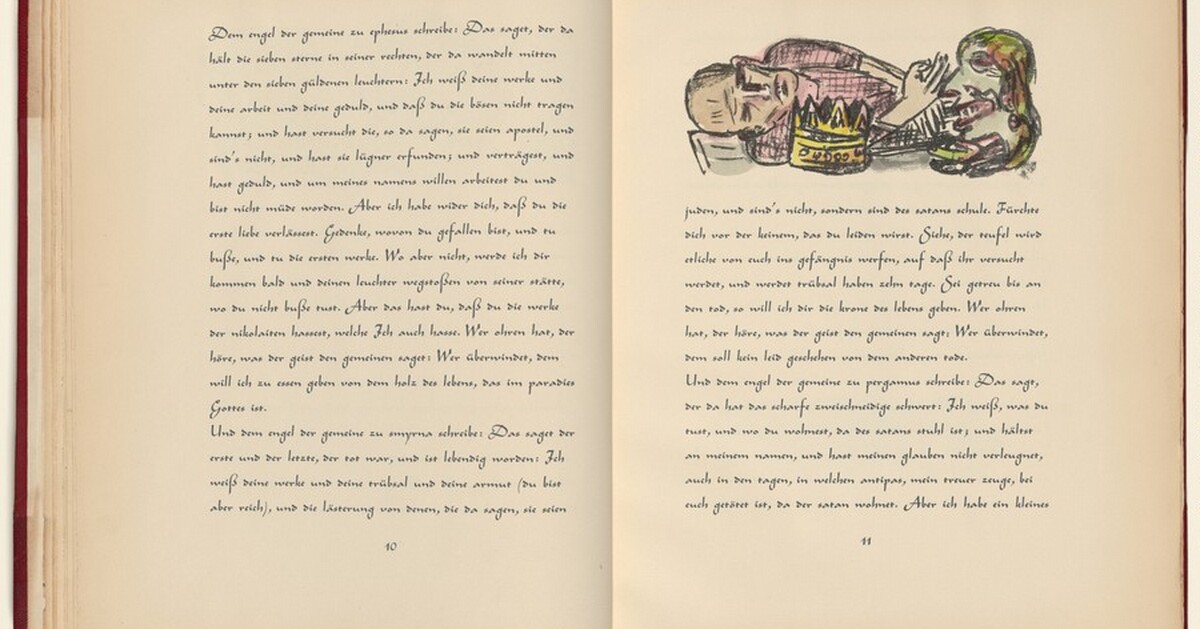 Dem engel der gemeine zu ephesus schreibe: Das saget, der da
hält die sieben sterne in seiner rechten, der da wandelt mitten
unter den sieben güldenen leuchtern: Ich weiß deine werke und
deine arbeit und deine geduld, und daß du die bösen nicht tragen
kannst; und hast versucht die, so da sagen, sie seien apostel, und
sind's nicht, und hast sie lügner erfunden; und verträgest, und
hast geduld, und um meines namens willen arbeitest du und
bist nicht müde worden. Aber ich habe wider dich, daß du die
erste liebe verlässest. Gedenke, wovon du gefallen bist, und tu
buße, und tu die ersten werke. Wo aber nicht, werde ich dir
kommen bald und deinen leuchter wegstoßen von seiner stätte,
wo du nicht buße tust. Aber das hast du, daß du die werke
der nikolaiten hassest, welche Ich auch hasse. Wer ohren hat, der
höre, was der geist den gemeinen saget: Wer überwindet, dem
will ich zu essen geben von dem holz des lebens, das im paradies
Gottes ist.
Und dem engel der gemeine zu smyrna schreibe: Das saget der
erste und der letzte, der tot war, und ist lebendig worden: Ich
weiß deine werke und deine trübsal und deine armut (du bist
aber reich), und die lästerung von denen, die da sagen, sie seien
10
juden, und sind's nicht, sondern sind des satans schule. Fürchte
dich vor der keinem, das du leiden wirst. Siehe, der teufel wird
etliche von euch ins gefängnis werfen, auf daß ihr versucht
werdet, und werdet trübsal haben zehn tage. Sei getreu bis an
den tod, so will ich dir die krone des lebens geben. Wer ohren
hat, der höre, was der geist den gemeinen sagt: Wer überwindet,
dem soll kein leid geschehen von dem anderen tode.
Und dem engel der gemeine zu pergamus schreibe: Das sagt,
der da hat das scharfe zweischneidige schwert: Ich weiß, was du
tust, und wo du wohnest, da des satans stuhl ist; und hältst
an meinem namen, und hast meinen glauben nicht verleugnet,
auch in den tagen, in welchen antipas, mein treuer zeuge, bei
euch getötet ist, da der satan wohnet. Aber ich habe ein kleines
11